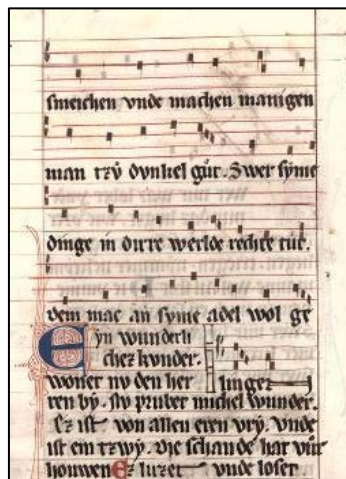 smeichen vnde machen manigen
man tzv dvnkel gůt. Swer syme
dinge in dirre werlde rechte tůt.
dem mac an syme adel wol ge
linget
Eyn wunderli
chez kvnder.
woner nv den her
ren by. Nv pruber michel wunder.
Ez ist von allen eren vry. vnde
ist ein tzwy. Die schande hat vůr
houwen Ez luzet vnde loser